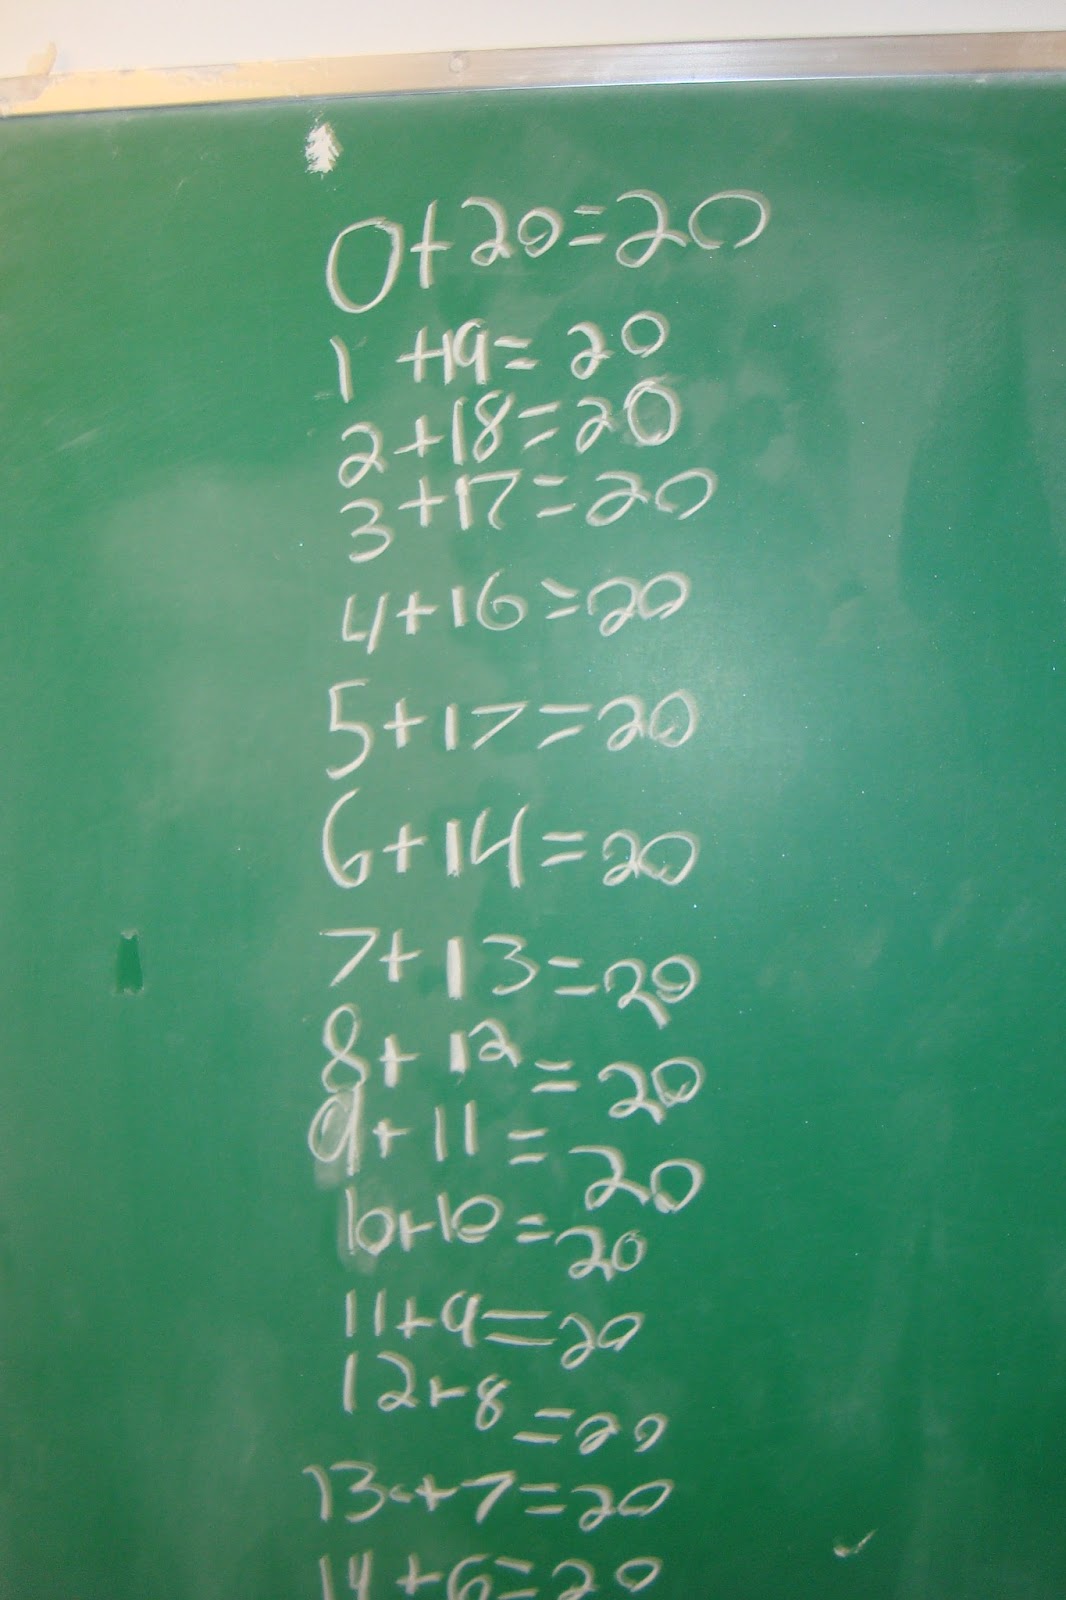 0+20=20
1+19=20
2+18=20
3+17=20
4+16=20
5+17=20
6+14=20
7+13=20
8+12=20
9+11=20
10+10=20
11+9=20
12+8=20
13+7=20
14+6=20